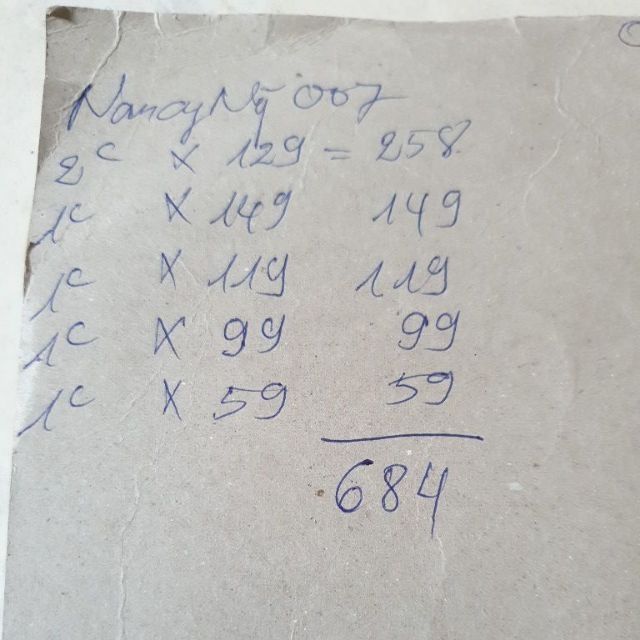 Nancy Mỹ 007
2c x 129 = 258
1c x 149 149
1c x 119 119
1c x 99 99
1c x 59 59
684